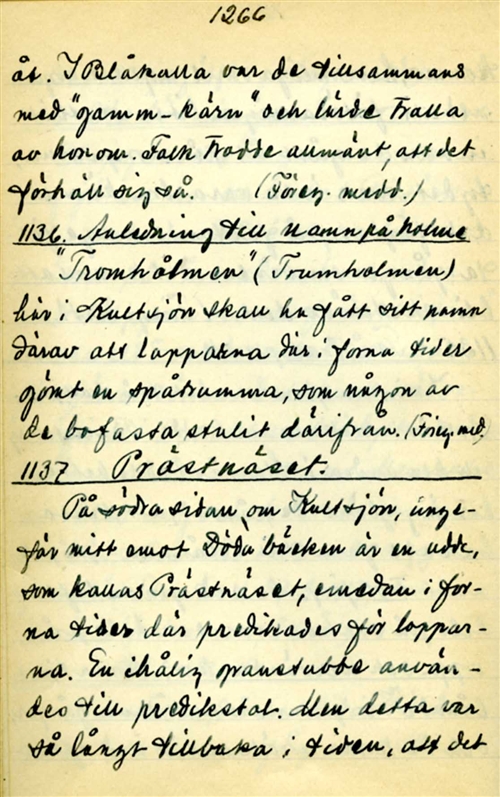 1266
åt. I Blåkulla var de tillsammans
med "gamm-kärn" och lärde trolla
av honom. Folk trodde allmänt, att det
förhåll sig så. (Föreg. medd.)
1136. Anledning till namn på holme
"Tromhôlmen" (Trumholmen)
här i Kultsjön skall ha fått sitt namn
därav att lapparna där i forna tider
gömt en spåtrumma, som någon av
de bofasta stulit därifrån. (Föreg. med.)
1137 Prästnäset.
På södra sidan om Kultsjön, unge-
fär mitt emot Döda bäcken är en udde,
som kallas Prästnäset, emedan i for-
na tider där predikades för lappar-
na. En ihålig granstubbe använ-
des till predikstol. Men detta var
så långt tillbaka i tiden, att det